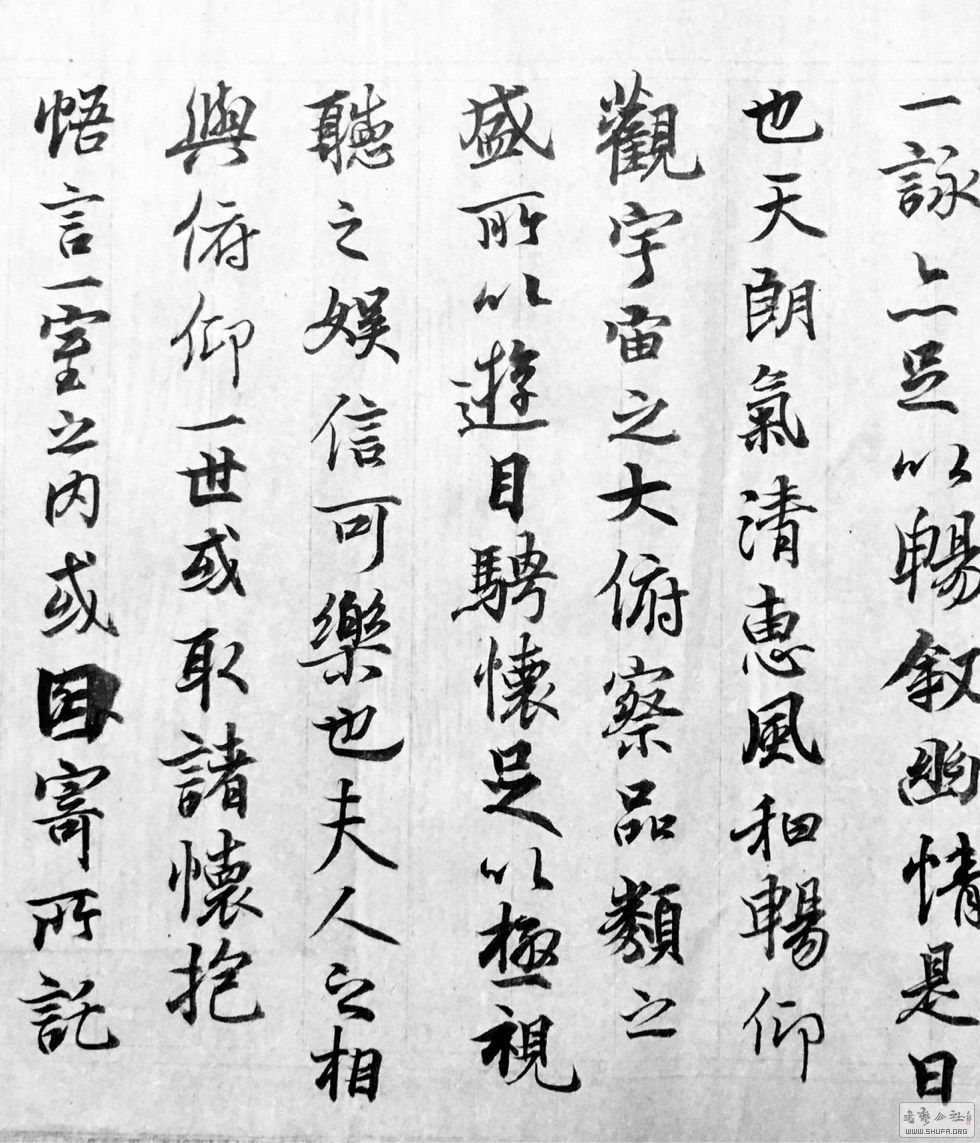 一詠亦足以暢叙幽情是日
也天朗氣清惠風和暢仰
觀宇宙之大俯察品類之
盛所以遊目騁懷足以極視
聽之娛信可樂也夫人之相
與俯仰一世或取諸懷抱
悟言一室之内或因寄所託
WWW.SHUFA.ORG